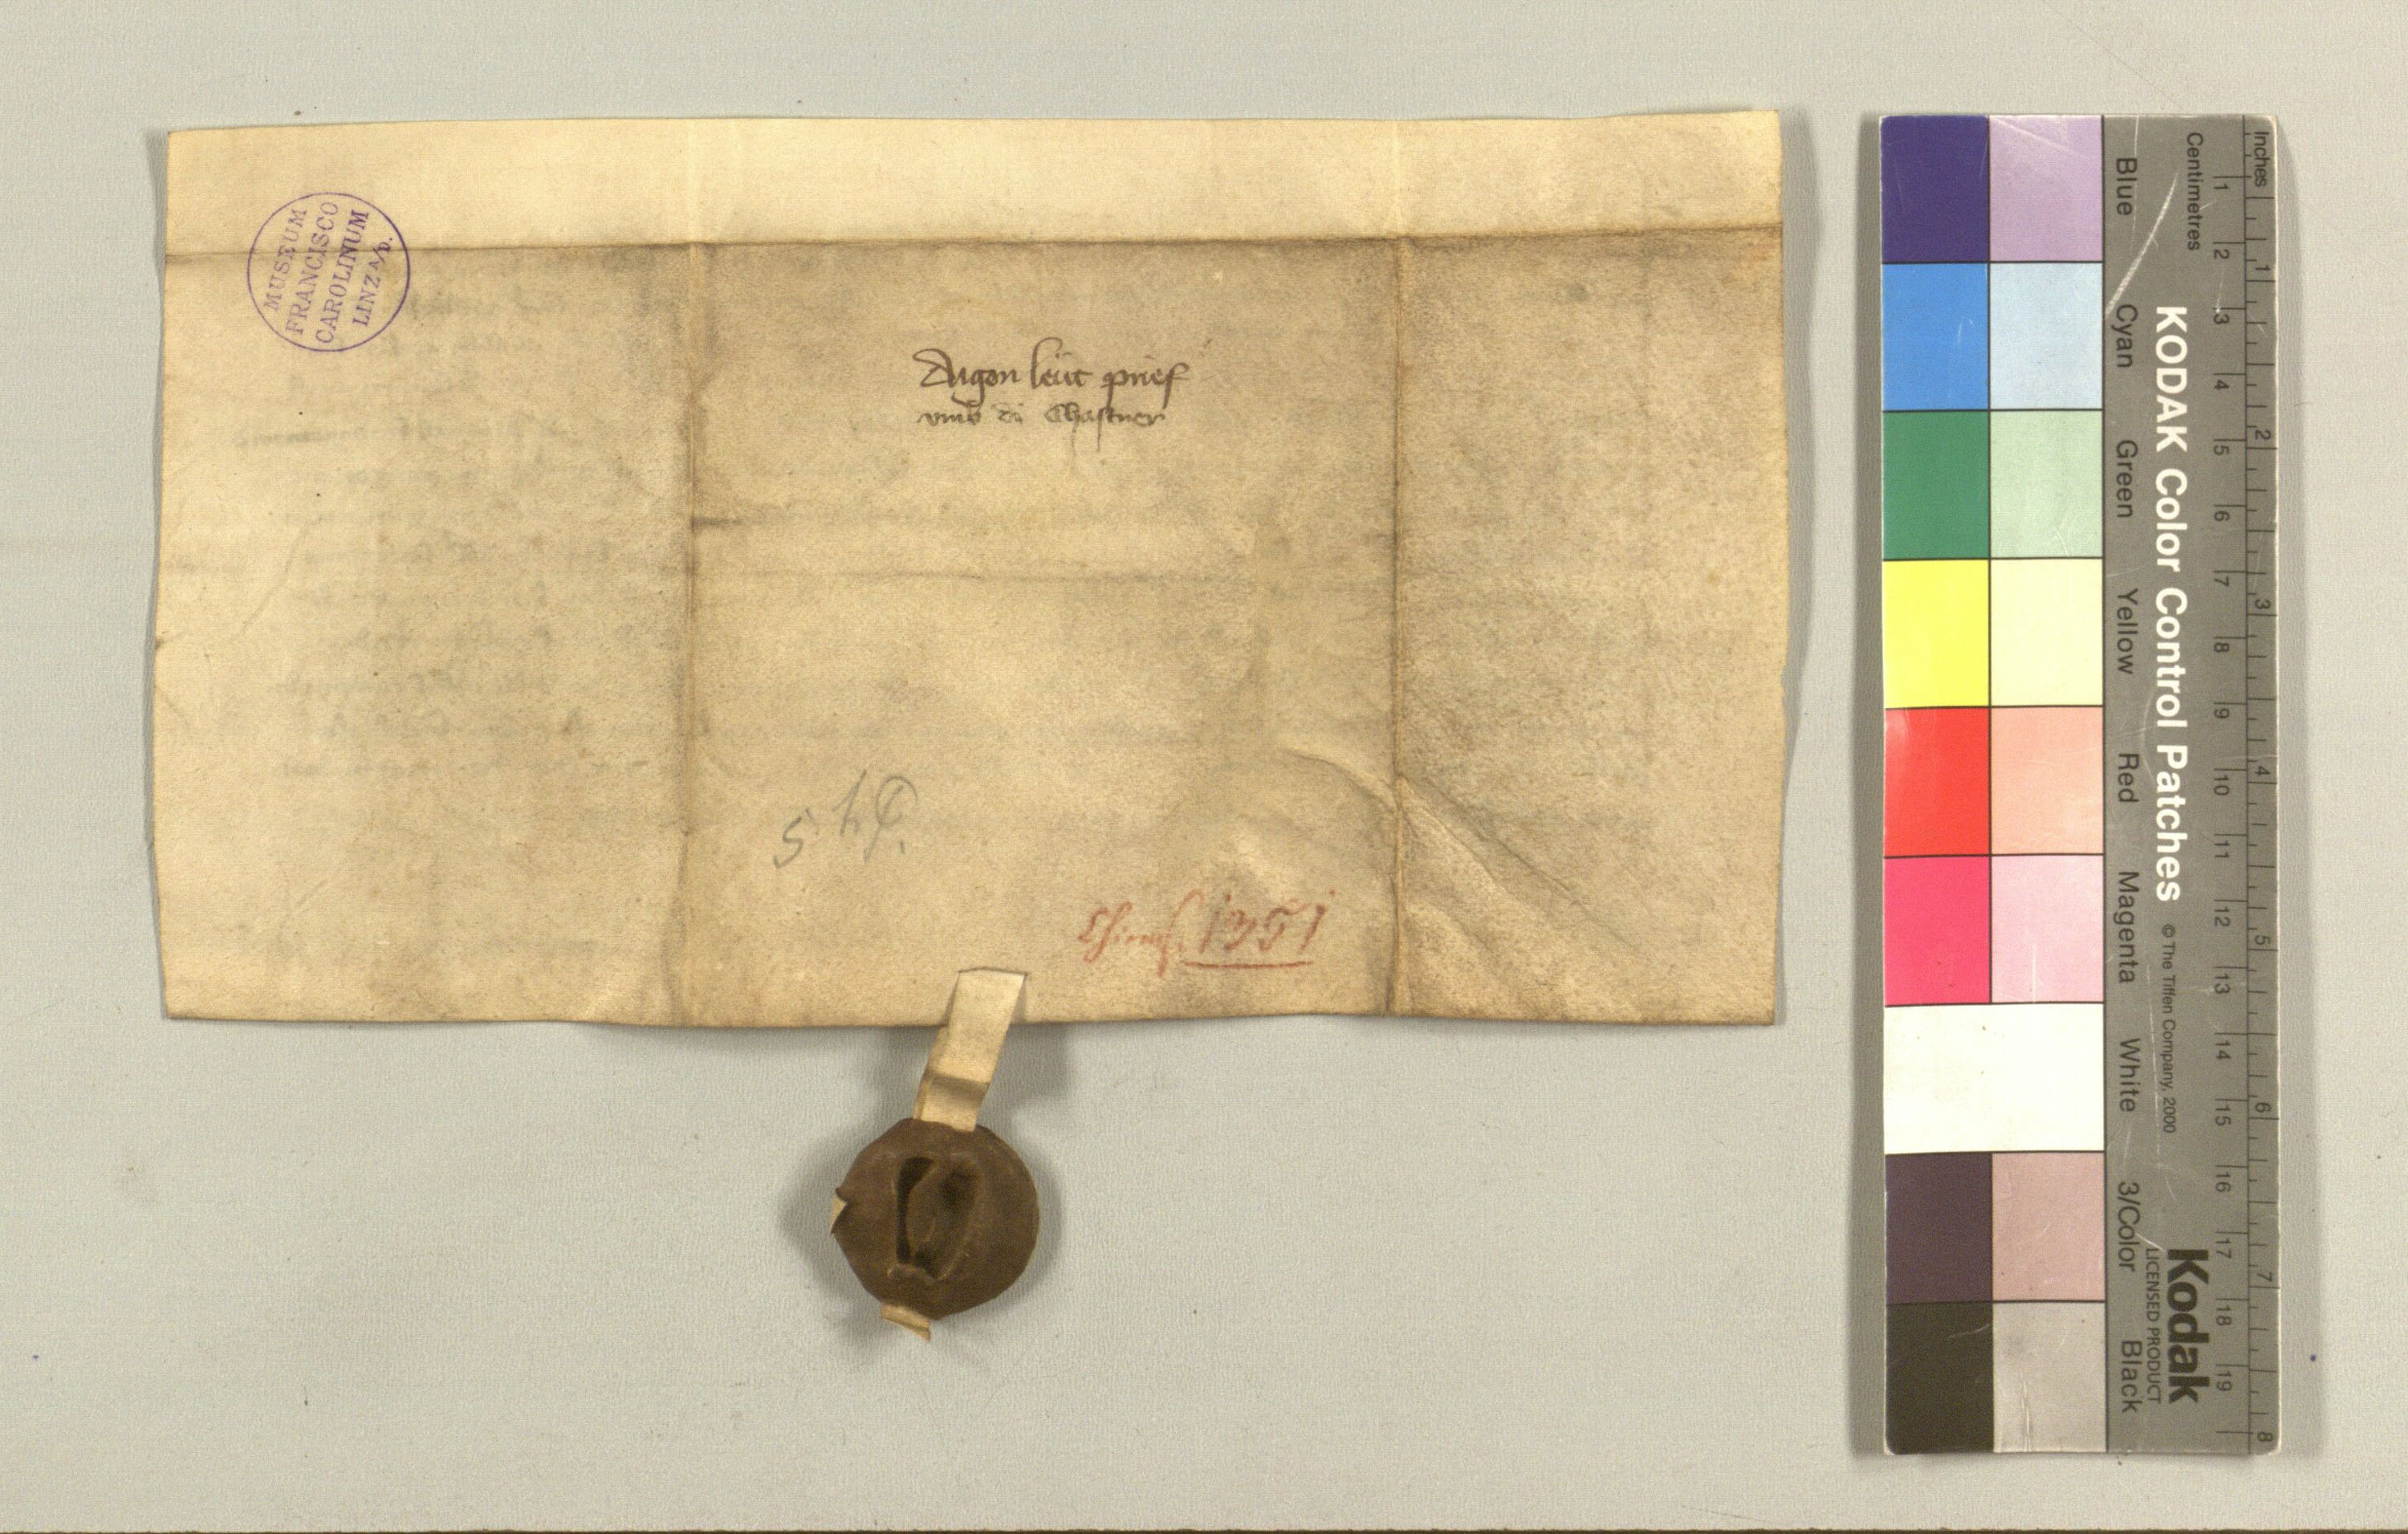 MUSEUM
FRANCISCO
CAROLINUM
LINZ A/D.
Aigon leüt prief
vmb di Chastner
1351
Inches
Centimetres
1 2 3 4 5 6 7 8 9 10 11 12 13 14 15 16 17 18 19
1 2 3 4 5 6 7 8
KODAK Color Control Patches © The Tiffen Company, 2000
Kodak
LICENSED PRODUCT
Blue Cyan Green Yellow Red Magenta White 3/Color Black